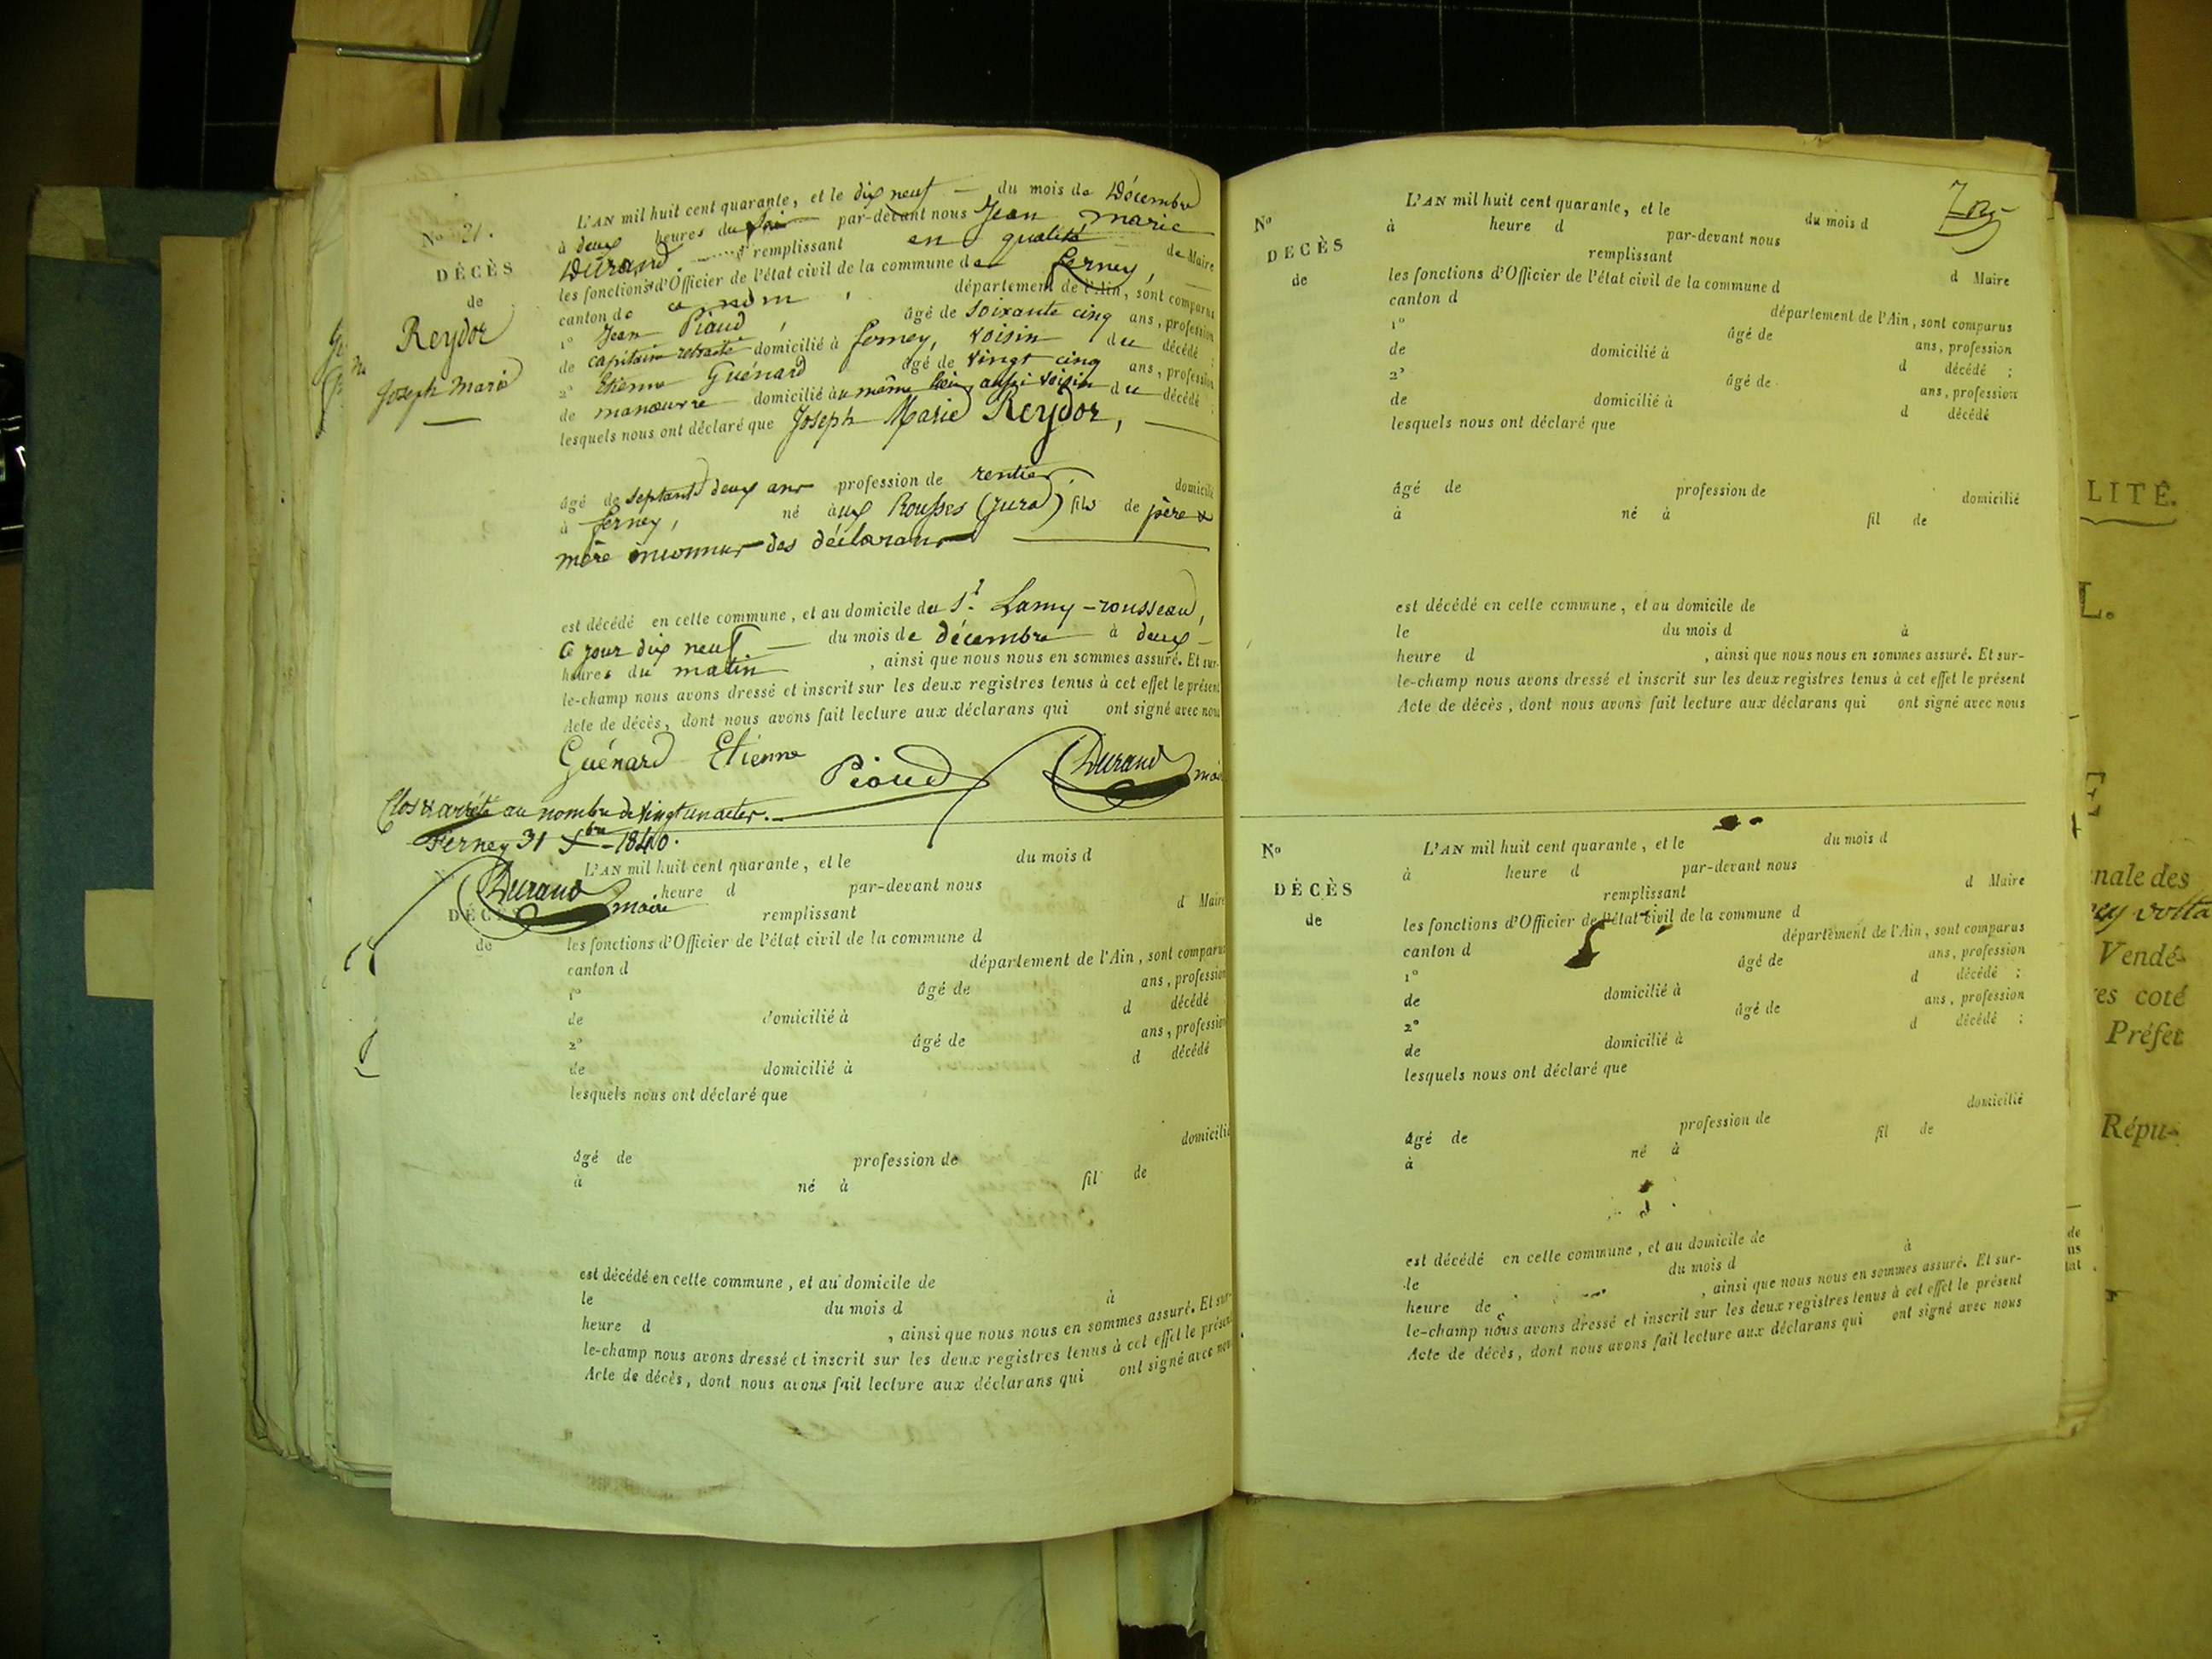 N° 21.
DÉCÈS
de
Reydor
Joseph Marie
L'AN mil huit cent quarante, et le dix neuf — du mois de Décembre
à deux heures du soir par-devant nous Jean Marie
Durand remplissant en qualité de Maire
les fonctions d'Officier de l'état civil de la commune de Ferney,
canton de département de l'Ain, sont comparus
1° Jean Piaud, âgé de soixante cinq ans, profession
de capitaine retraité domicilié à Ferney, voisin du décédé ;
2° Etienne Guénard âgé de vingt cinq ans, profession
de manœuvre domicilié au même lieu aussi voisin du décédé ;
lesquels nous ont déclaré que Joseph Marie Reydor,
âgé de septante deux ans profession de rentier, domicilié
à Ferney, né aux Rousses (Jura) fils de père &
mère inconnus des déclarans
est décédé en cette commune, et au domicile du Sr. Lamy-rousseau,
ce jour dix neuf — du mois de décembre à deux
heures du matin , ainsi que nous nous en sommes assuré. Et sur-
le-champ nous avons dressé et inscrit sur les deux registres tenus à cet effet le présent
Acte de décès, dont nous avons fait lecture aux déclarans qui ont signé avec nous
Guénard Etienne Piaud Durand maire
Clos & arrêté au nombre de vingt un actes.
Ferney 31 Xbre 1840.
Durand maire
DÉCÈS
de
L'AN mil huit cent quarante, et le du mois d
heure d par-devant nous
remplissant d Maire
les fonctions d'Officier de l'état civil de la commune d
canton d département de l'Ain, sont comparus
1° âgé de ans, profession
de domicilié à d décédé
2° âgé de ans, profession
de domicilié à d décédé
lesquels nous ont déclaré que
âgé de profession de domicilié
à né à fil de
est décédé en cette commune, et au domicile de
le du mois d à
heure d , ainsi que nous nous en sommes assuré. Et sur-
le-champ nous avons dressé et inscrit sur les deux registres tenus à cet effet le présent
Acte de décès, dont nous avons fait lecture aux déclarans qui ont signé avec nous
N°
DÉCÈS
de
L'AN mil huit cent quarante, et le du mois d
à heure d par-devant nous
remplissant d Maire
les fonctions d'Officier de l'état civil de la commune d
canton d département de l'Ain, sont comparus
1° âgé de ans, profession
de domicilié à d décédé ;
2° âgé de ans, profession
de domicilié à d décédé
lesquels nous ont déclaré que
âgé de profession de domicilié
à né à fil de
est décédé en cette commune, et au domicile de
le du mois d à
heure d , ainsi que nous nous en sommes assuré. Et sur-
le-champ nous avons dressé et inscrit sur les deux registres tenus à cet effet le présent
Acte de décès, dont nous avons fait lecture aux déclarans qui ont signé avec nous
N°
DÉCÈS
de
L'AN mil huit cent quarante, et le du mois d
à heure d par-devant nous
remplissant d Maire
les fonctions d'Officier de l'état civil de la commune d
canton d département de l'Ain, sont comparus
1° âgé de ans, profession
de domicilié à d décédé ;
2° âgé de ans, profession
de domicilié à d décédé ;
lesquels nous ont déclaré que
âgé de profession de domicilié
à né à fil de
est décédé en cette commune, et au domicile de
le du mois d à
heure de , ainsi que nous nous en sommes assuré. Et sur-
le-champ nous avons dressé et inscrit sur les deux registres tenus à cet effet le présent
Acte de décès, dont nous avons fait lecture aux déclarans qui ont signé avec nous
LITÉ.
L.
nale des
ey volta
Vendé-
res coté
Préfet
Répu-